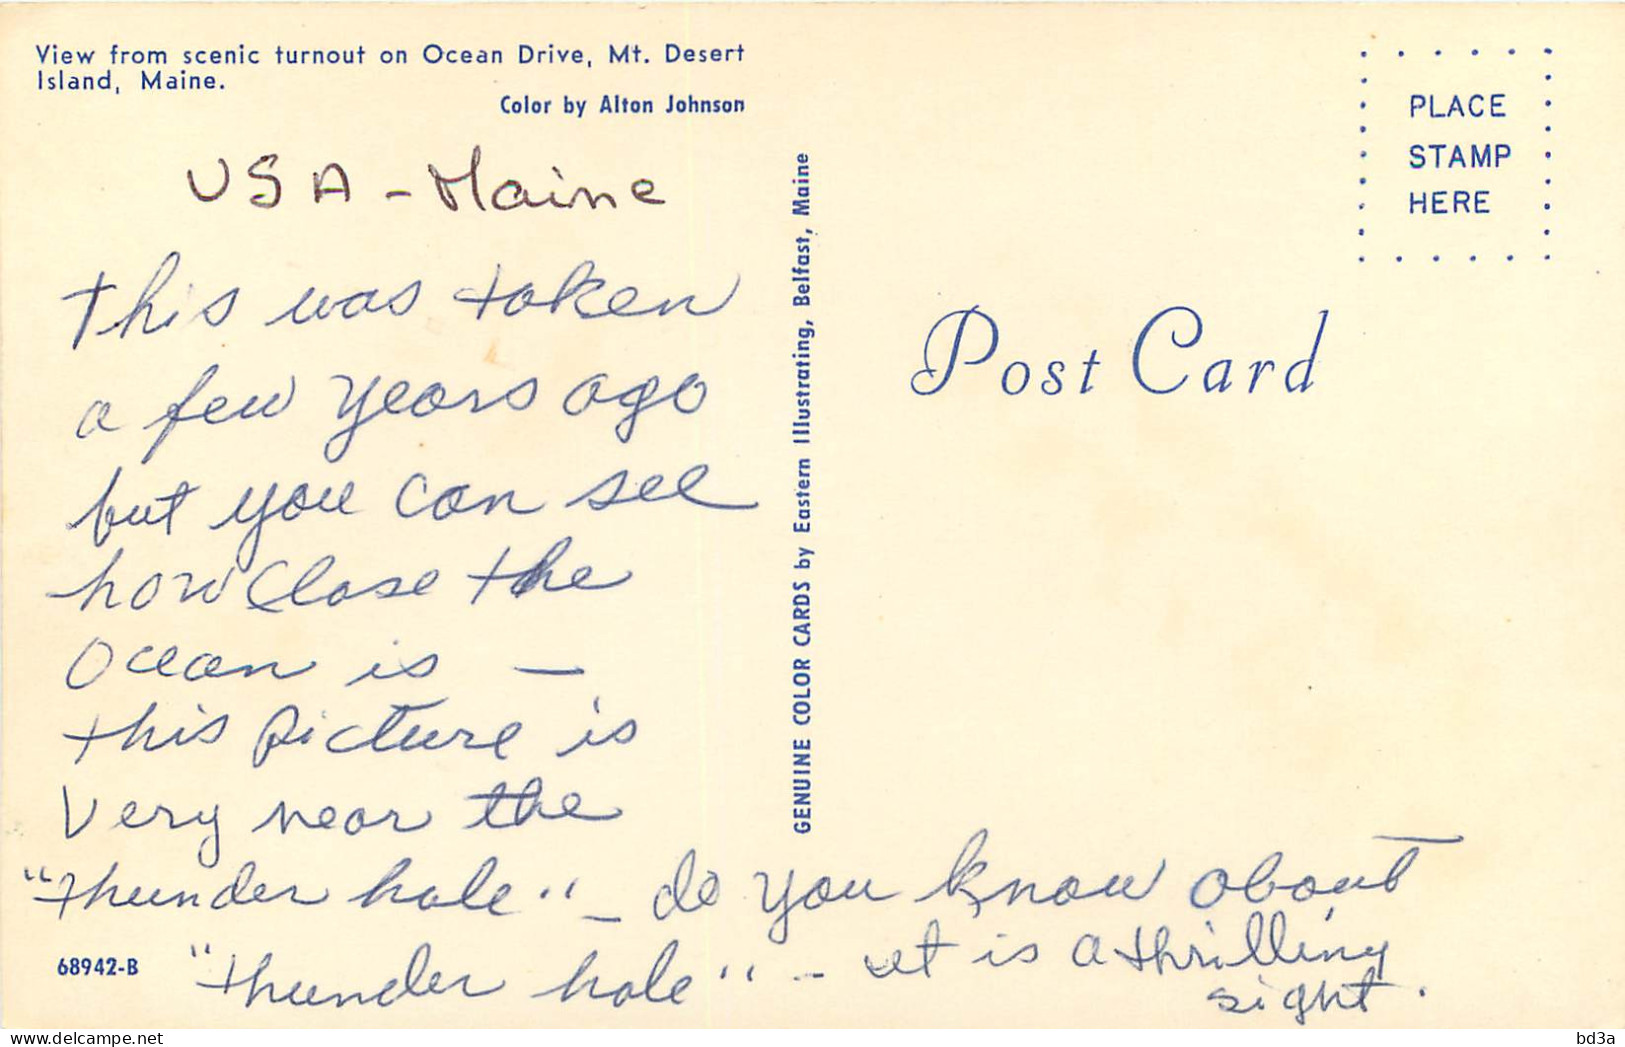 View from scenic turnout on Ocean Drive, Mt. Desert
Island, Maine.
Color by Alton Johnson
USA - Maine
This was taken
a few years ago
but you can see
how close the
Ocean is —
this picture is
Very near the
"thunder hole" - do you know about
"thunder hole" - it is a thrilling
sight.
68942-B
GENUINE COLOR CARDS by Eastern Illustrating, Belfast, Maine
PLACE
STAMP
HERE
Post Card
bd3a